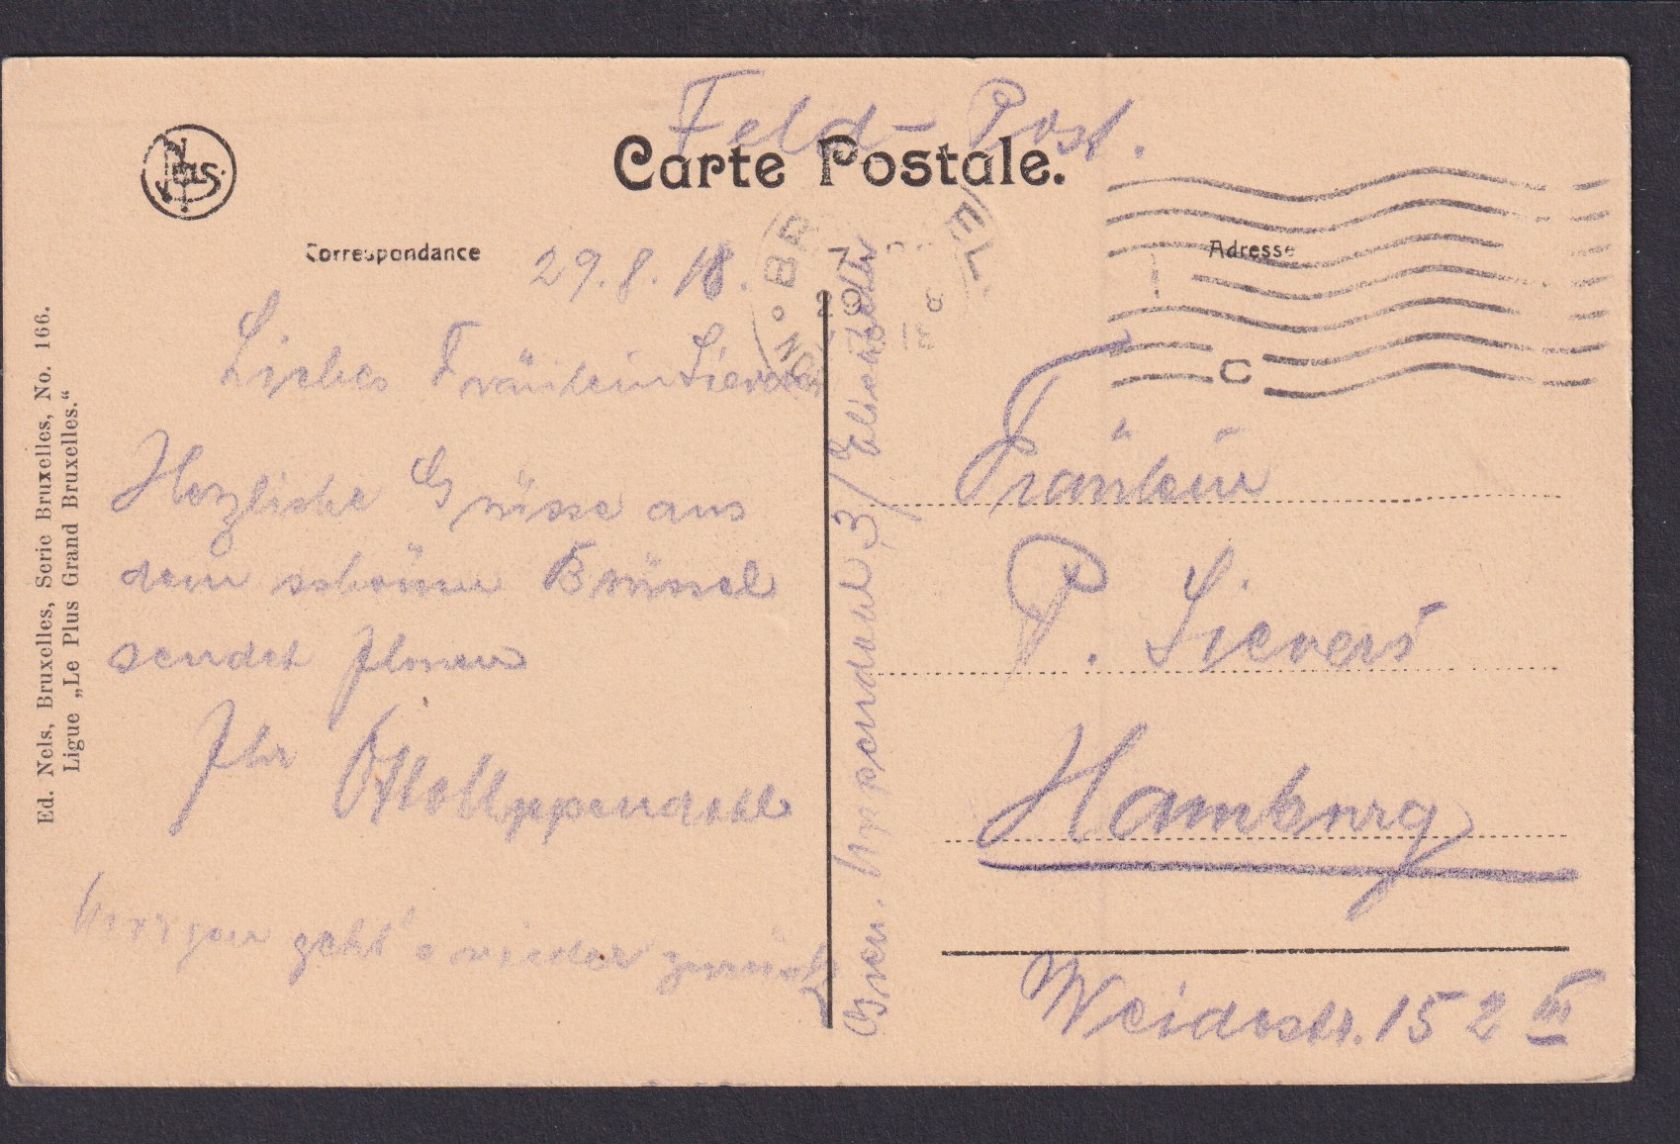 Feld-Post.
Carte Postale.
Nels.
Correspondance
Adresse
29.8.18.
Liebes Fräulein Sievers
Herzliche Grüsse aus
dem schönen Brüssel
sendet Ihnen
Ihr Otto Uppendahl
Morgen geht's wieder zurück
Gren. Uppendahl 3/ Elisabether
C
Fräulein
P. Sievers
Hamburg
Weidestr. 152 III
Ed. Nels, Bruxelles, Serie Bruxelles, No. 166.
Ligue „Le Plus Grand Bruxelles.“